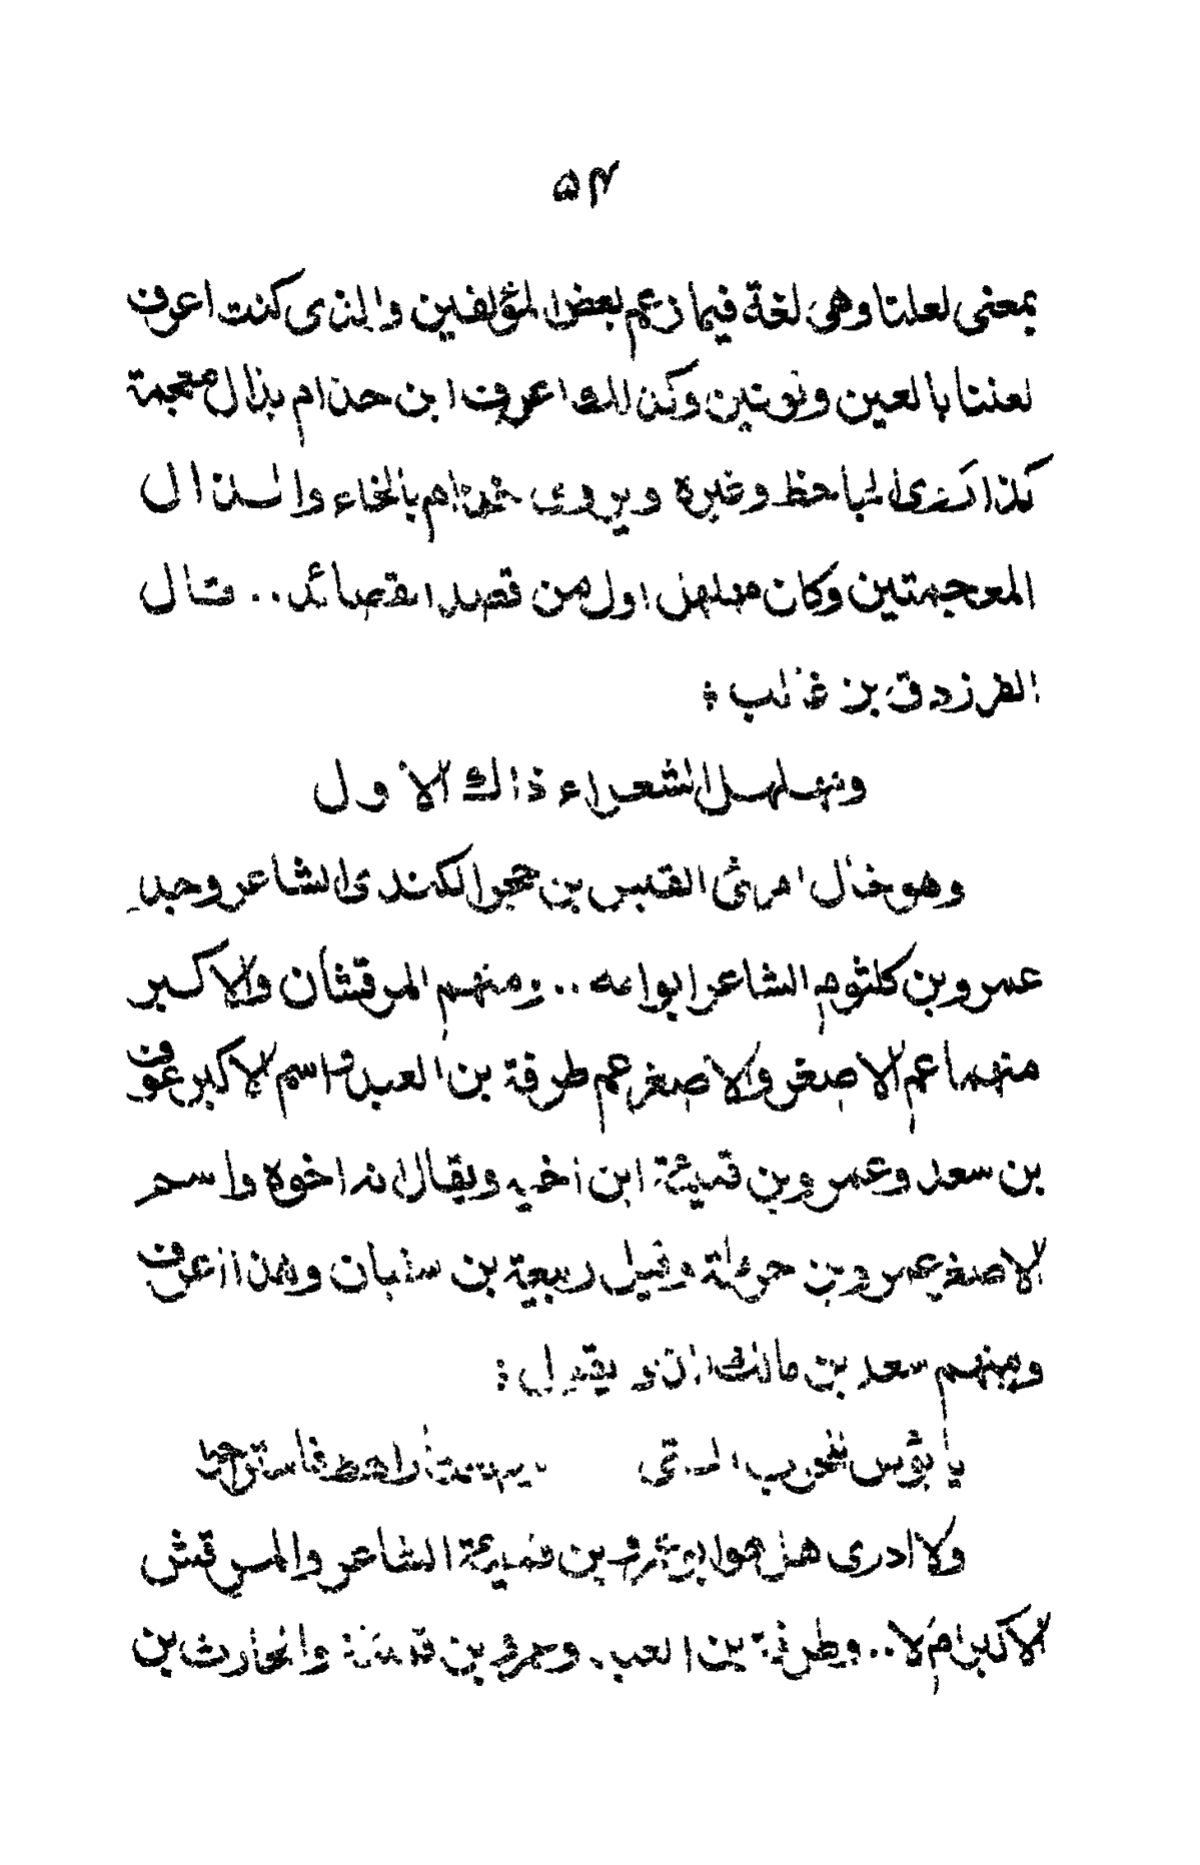 ٥٤
بمعنى لعلنا وهى لغة فيما زعم بعض المؤلفين والذى كنت اعرف
لعننا بالعين ونونين وكذلك اعرف ابن حذام بذال معجمة
كذا روى الجاحظ وغيره ويروى خذام بالخاء والذال
المعجمتين وكان مهلهل اول من قصد القصائد.. قال
الفرزدق بن غالب :
ومهلهل الشعراء ذاك الاول
وهو خال امرئ القيس بن حجر الكندى الشاعر وجد
عمرو بن كلثوم الشاعر ابو امه .. ومنهم المرقشان والاكبر
منهما عم الاصغر والاصغر عم طرفة بن العبد واسم الاكبر عوف
بن سعد وعمرو بن قميئة ابن اخيه ويقال انه اخوه واسم
الاصغر عمرو بن حرملة وقيل ربيعة بن سفيان وهذا اعرف
ومنهم سعد بن مالك الذى يقول :
يا بؤس للحرب التى وضعت اراهط فاستراحوا
ولا ادرى هل هو ابو عمرو بن قميئة الشاعر والمرقش
الاكبر ام لا .. وطرفة بن العبد وعمرو بن قميئة والحارث بن